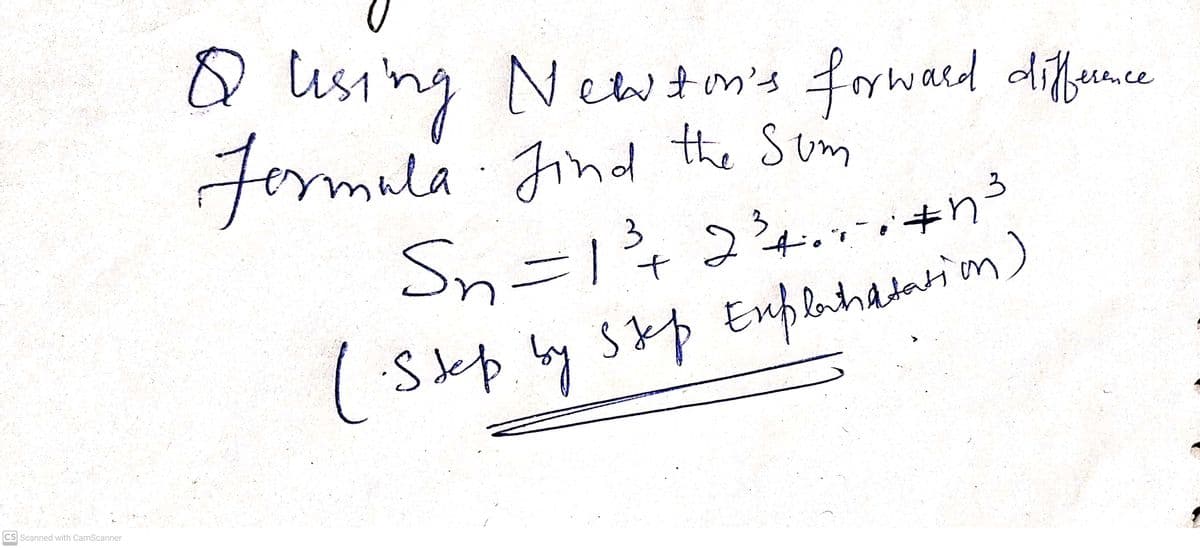 Q Using Newton's forward difference
formula. Find the Sum
Sn = 1³ + 2³ + ..... + n³
(Step by Step
CS Scanned with CamScanner